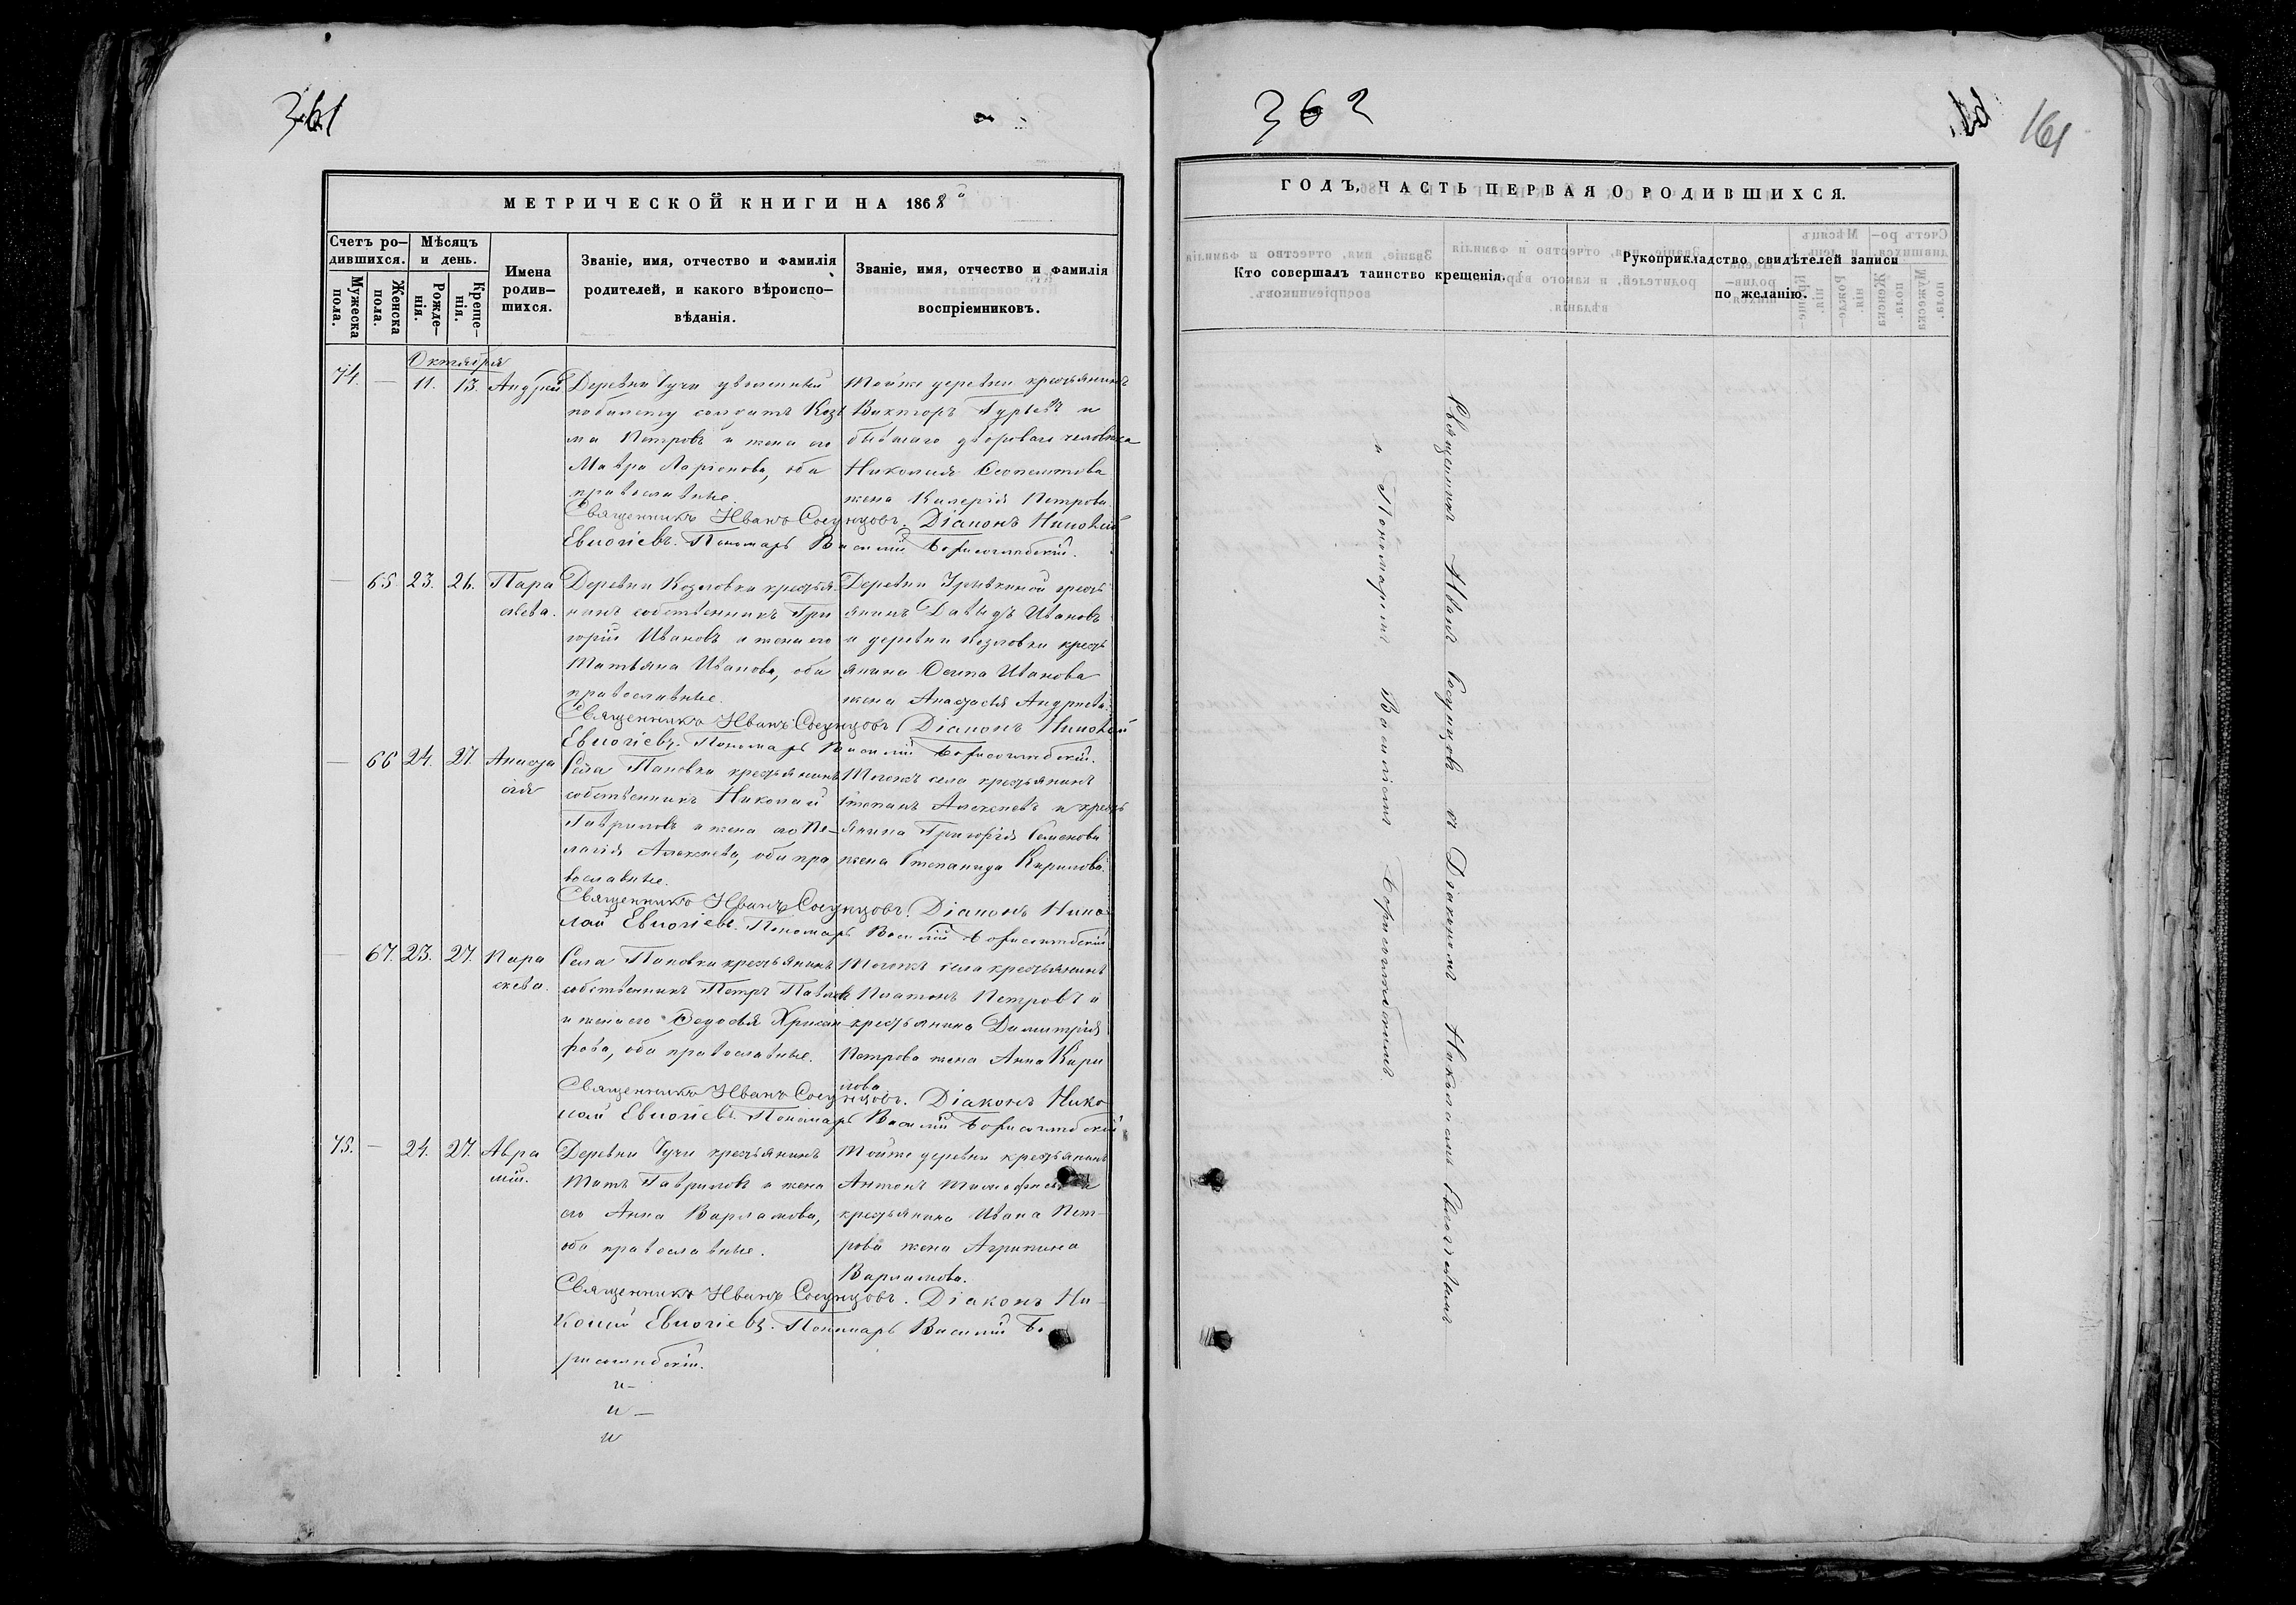 361
МЕТРИЧЕСКОЙ КНИГИ НА 1868й
Счетъ ро-
дившихся.
Мѣсяцъ
и день.
Мужеска
пола.
Женска
пола.
Рожде-
нія.
Креще-
нія.
Имена
родив-
шихся.
Званіе, имя, отчество и фамилія
родителей, и какого вѣроиспо-
вѣданія.
Званіе, имя, отчество и фамилія
воспріемниковъ.
Октября
74. — 11. 13. Андрей
Деревни Чучи уволенный
по билету солдатъ Козь
ма Петровъ и жена его
Мавра Ларіонова, оба
православные.
Тойже деревни крестьянинъ
Викторъ Гурьевъ и
бывшаго двороваго человѣка
Николая
жена Валерія Петрова.
Священникъ Иванъ Сосунцовъ. Діаконъ Николай
Евлогіевъ. Пономарь Василій Борисоглѣбскій.
— 65. 23. 26. Пара
скева.
Деревни Козловки крестья-
нинъ собственникъ Гри
горій Ивановъ и жена его
Татьяна Иванова, оба
православные.
Деревни кресть
янинъ Давыдъ Ивановъ
и деревни Козловки кресть
янина Осипа Иванова
жена Анастасія Андреева.
Священникъ Иванъ Сосунцовъ. Діаконъ Николай
Евлогіевъ. Пономарь Василій Борисоглѣбскій.
— 66 24. 27. Анаста
сія
Села Пановки крестьянинъ
собственникъ Николай
Гавриловъ и жена его Пе-
лагія Алексѣева, оба пра
вославные.
Тогожъ села крестьянинъ
Степанъ Алексѣевъ и кресть
янина Григорія Семенова
жена Степанида Кирилова.
Священникъ Иванъ Сосунцовъ. Діаконъ Нико
лай Евлогіевъ. Пономарь Василій Борисоглѣбскій
— 67. 23. 27. Пара
скева.
Села Пановки крестьянинъ
собственникъ Петръ Павловъ
и жена его Ѳедосья Хрисан
фова, оба православные.
Тогожъ села крестьянинъ
Платонъ Петровъ и
крестьянина Димитрія
Петрова жена Анна Кири
лова
Священникъ Иванъ Сосунцовъ. Діаконъ Нико
лай Евлогіевъ. Пономарь Василій Борисоглѣбскій
75. — 24. 27. Авра
мій.
Деревни Чучи крестьянинъ
Титъ Гавриловъ и жена
его Анна Варламова,
оба православные.
Тойже деревни крестьянинъ
Антонъ Тимофѣевъ и
крестьянина Ивана Пет-
рова жена Агрипина
Варламова.
Священникъ Иванъ Сосунцовъ. Діаконъ Ни-
колай Евлогіевъ. Пономарь Василій Бо
рисоглѣбскій.
и-
и —
и
362
161
ГОДЪ, ЧАСТЬ ПЕРВАЯ О РОДИВШИХСЯ.
Кто совершалъ таинство крещенія.
Рукоприкладство свидѣтелей записи
по желанію.
Священникъ Иванъ Сосунцовъ съ Діакономъ Николаемъ Евлогіевымъ
и Пономаремъ Василіемъ Борисоглѣбскимъ.